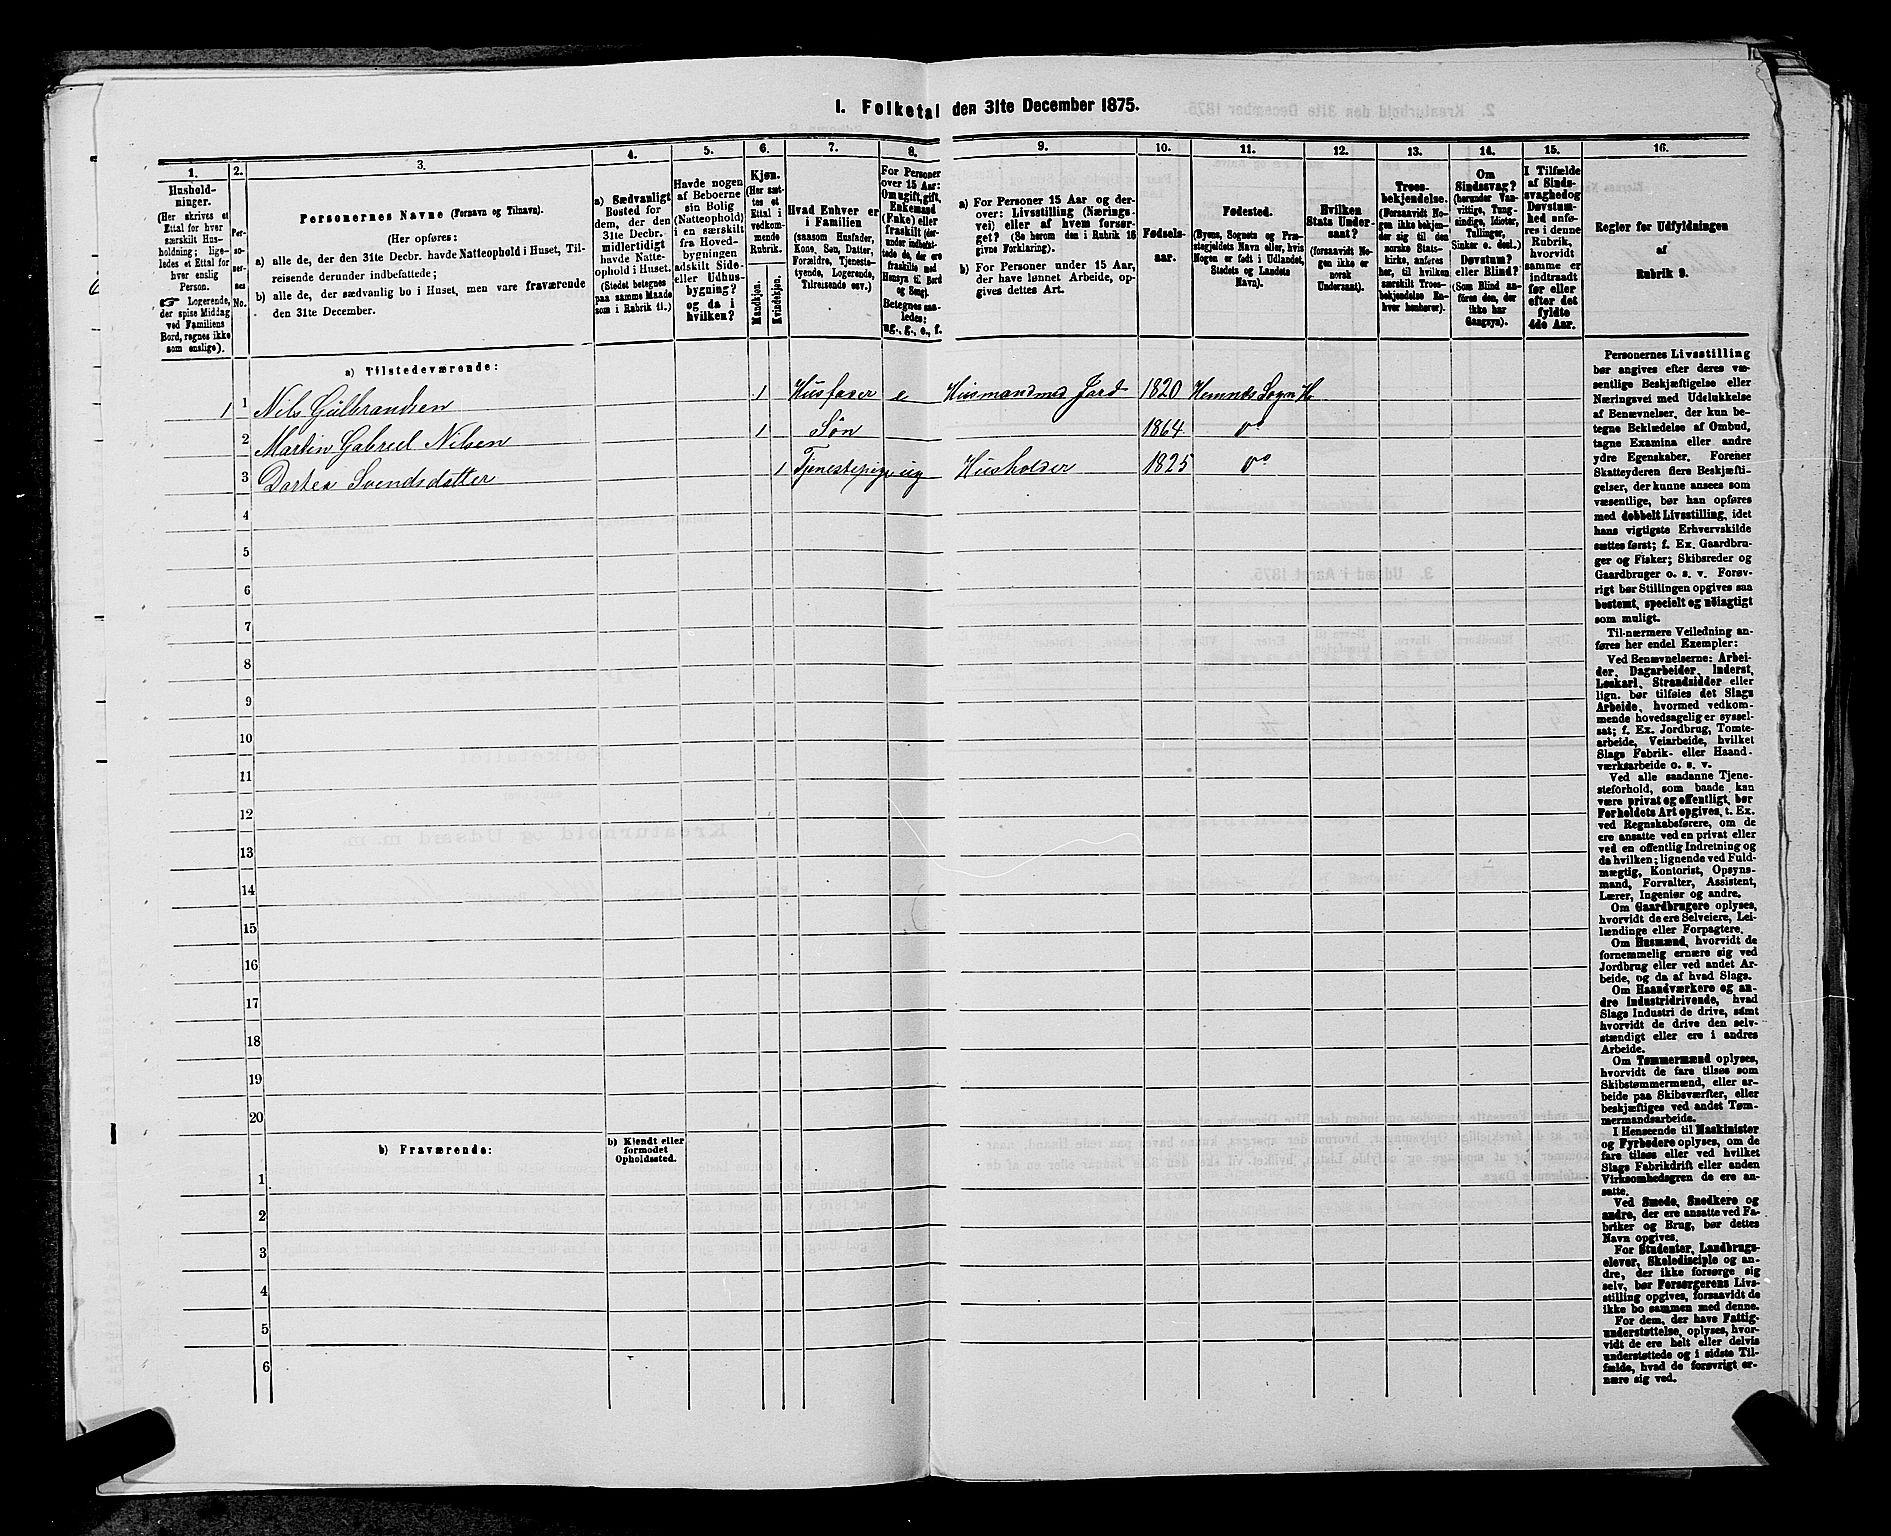 I. Folketal den 31te December 1875.
1.
Hushold-
ninger.
(Her skrives et
Ettal for hver
særskilt Hus-
holdning; lige-
ledes et Ettal for
hver enslig
Person.
☞ Logerende,
der spise Middag
ved Familiens
Bord, regnes ikke
som enslige).
2.
Per-
so-
ner-
nes
No.
3.
Personernes Navne (Fornavn og Tilnavn).
(Her opføres:
a) alle de, der den 31te Decbr. havde Natteophold i Huset, Til-
reisende derunder indbefattede;
b) alle de, der sædvanlig bo i Huset, men vare fraværende
den 31te December.
4.
a) Sædvanligt
Bosted for
dem, der den
31te Decbr.
midlertidigt
havde Natte-
ophold i Huset.
(Stedet betegnes
paa samme Maade
som i Rubrik 11.)
5.
Havde nogen
af Beboerne
sin Bolig
(Natteophold)
i en særskilt
fra Hoved-
bygningen
adskilt Side-
eller Udhus-
bygning?
og da i
hvilken?
6.
Kjøn.
(Her sæt-
tes et
Ettal i
vedkom-
mende
Rubrik.)
Mandkjøn.
Kvindekjøn.
7.
Hvad Enhver er
i Familien
(saasom Husfader,
Kone, Søn, Datter,
Forældre, Tjeneste-
tyende, Logerende,
Tilreisende osv.)
8.
For Personer
over 15 Aar:
Om ugift, gift,
Enkemand
(Enke) eller
fraskilt (der-
under indbefat-
tede de, der ere
fraskilte med
Hensyn til Bord
og Seng).
Betegnes saa-
ledes:
ug., g., e., f.
9.
a) For Personer 15 Aar og der-
over: Livsstilling (Nærings-
vei) eller af hvem forsør-
get? (Se herom den i Rubrik 16
givne Forklaring).
b) For Personer under 15 Aar,
der have lønnet Arbeide, op-
gives dettes Art.
10.
Fødsels-
aar.
11.
Fødested.
(Byens, Sognets og Præ-
stegjeldets Navn eller, hvis
Nogen er født i Udlandet,
Stedets og Landets
Navn).
12.
Hvilken
Stats Under-
saat?
(forsaavidt No-
gen ikke er
norsk
Undersaat).
13.
Troes-
bekjendelse.
(Forsaavidt No-
gen ikke bekjen-
der sig til den
norske Stats-
kirke, anføres
her, til hvilken
særskilt Troes-
bekjendelse En-
hver henhører).
14.
Om
Sindssvag?
(herunder Van-
vittige, Tung-
sindige, Idioter,
Tullinger,
Sinker o. desl.)
Døvstum?
eller Blind?
(Som Blind an-
føres den, der
ikke har
Gangsyn).
15.
I Tilfælde
af Sinds-
svaghed og
Døvstum-
hed anfø-
res i denne
Rubrik,
hvorvidt
samme er
indtraadt
før eller
efter det
fyldte
4de Aar.
16.
Regler for Udfyldningen
af
Rubrik 9.
a) Tilstedeværende:
1 1 Nils Gulbrandsen 1 Husfader e Husmand med Jord 1820 Hemnæs Sogn H
2 Martin Gabriel Nilsen 1 Søn 1864 do
3 Dortea Svendsdatter 1 Tjenestepige ug Husholder 1825 do
4
5
6
7
8
9
10
11
12
13
14
15
16
17
18
19
20
b) Fraværende:
b) Kjendt eller
formodet
Opholdssted.
1
2
3
4
5
6
Personernes Livsstilling
bør angives efter deres væ-
sentlige Beskjæftigelse eller
Næringsvei med Udelukkelse
af Benævnelser, der kun be-
tegne Beklædelse af Ombud,
tagne Examina eller andre
ydre Egenskaber. Forener
Skatteyderen flere Beskjæfti-
gelser, der kunne ansees som
væsentlige, bør han opføres
med dobbelt Livsstilling, idet
hans vigtigste Erhvervskilde
sættes først; f. Ex. Gaardbru-
ger og Fisker; Skibsreder og
Gaardbruger o. s. v. Forøv-
rigt bør Stillingen opgives saa
bestemt, specielt og nøiagtigt
som muligt.
Til nærmere Veiledning an-
føres her endel Exempler:
Ved Benævnelserne: Arbei-
der, Dagarbeider, Inderst,
Løskarl, Strandsidder eller
lign. bør tilføies det Slags
Arbeide, hvormed vedkom-
mende hovedsagelig er syssel-
sat; f. Ex. Jordbrug, Tomte-
arbeide, Veiarbeide, hvilket
Slags Fabrik- eller Haand-
værksarbeide o. s. v.
Ved alle saadanne Tjene-
steforhold, som baade kan
være privat og offentligt, bør
Forholdets Art opgives, t. Ex.
ved Regnskabsførere, om de
ere ansatte ved en privat eller
ved en offentlig Indretning og
da hvilken; lignende ved Fuld-
mægtig, Kontorist, Opsyns-
mand, Forvalter, Assistent,
Lærer, Ingeniør og andre.
Om Gaardbrugere oplyses,
hvorvidt de ere Selveiere, Lei-
lændinge eller Forpagtere.
Om Husmænd, hvorvidt de
fornemmelig ernære sig ved
Jordbrug eller ved andet Ar-
beide, og da af hvad Slags.
Om Haandværkere og an-
dre Industridrivende, hvad
Slags Industri de drive, samt
hvorvidt de drive den selv-
stændigt eller ere i andres
Arbeide.
Om Tømmermænd oplyses,
hvorvidt de fare tilsøs som
Skibstømmermænd, eller ar-
beide paa Skibsværfter, eller
beskjæftiges ved andet Tøm-
mermandsarbeide.
I Henseende til Maskinister
og Fyrbødere oplyses, om de
fare tilsøs eller ved hvilket
Slags Fabrikdrift eller anden
Virksomhedsgren de ere an-
satte.
Ved Smede, Snedkere og
andre, der ere ansatte ved Fa-
briker og Brug, bør dettes
Navn opgives.
For Studenter, Landbrugs-
elever, Skoledisciple og an-
dre, der ikke forsørge sig
selv, bør Forsørgerens Livs-
stilling opgives, forsaavidt de
ikke bo sammen med denne.
For dem, der have Fattig-
understøttelse, oplyses, hvor-
vidt de ere helt eller delvis
understøttede og i sidste Til-
fælde, hvad de forøvrigt er-
nære sig ved.